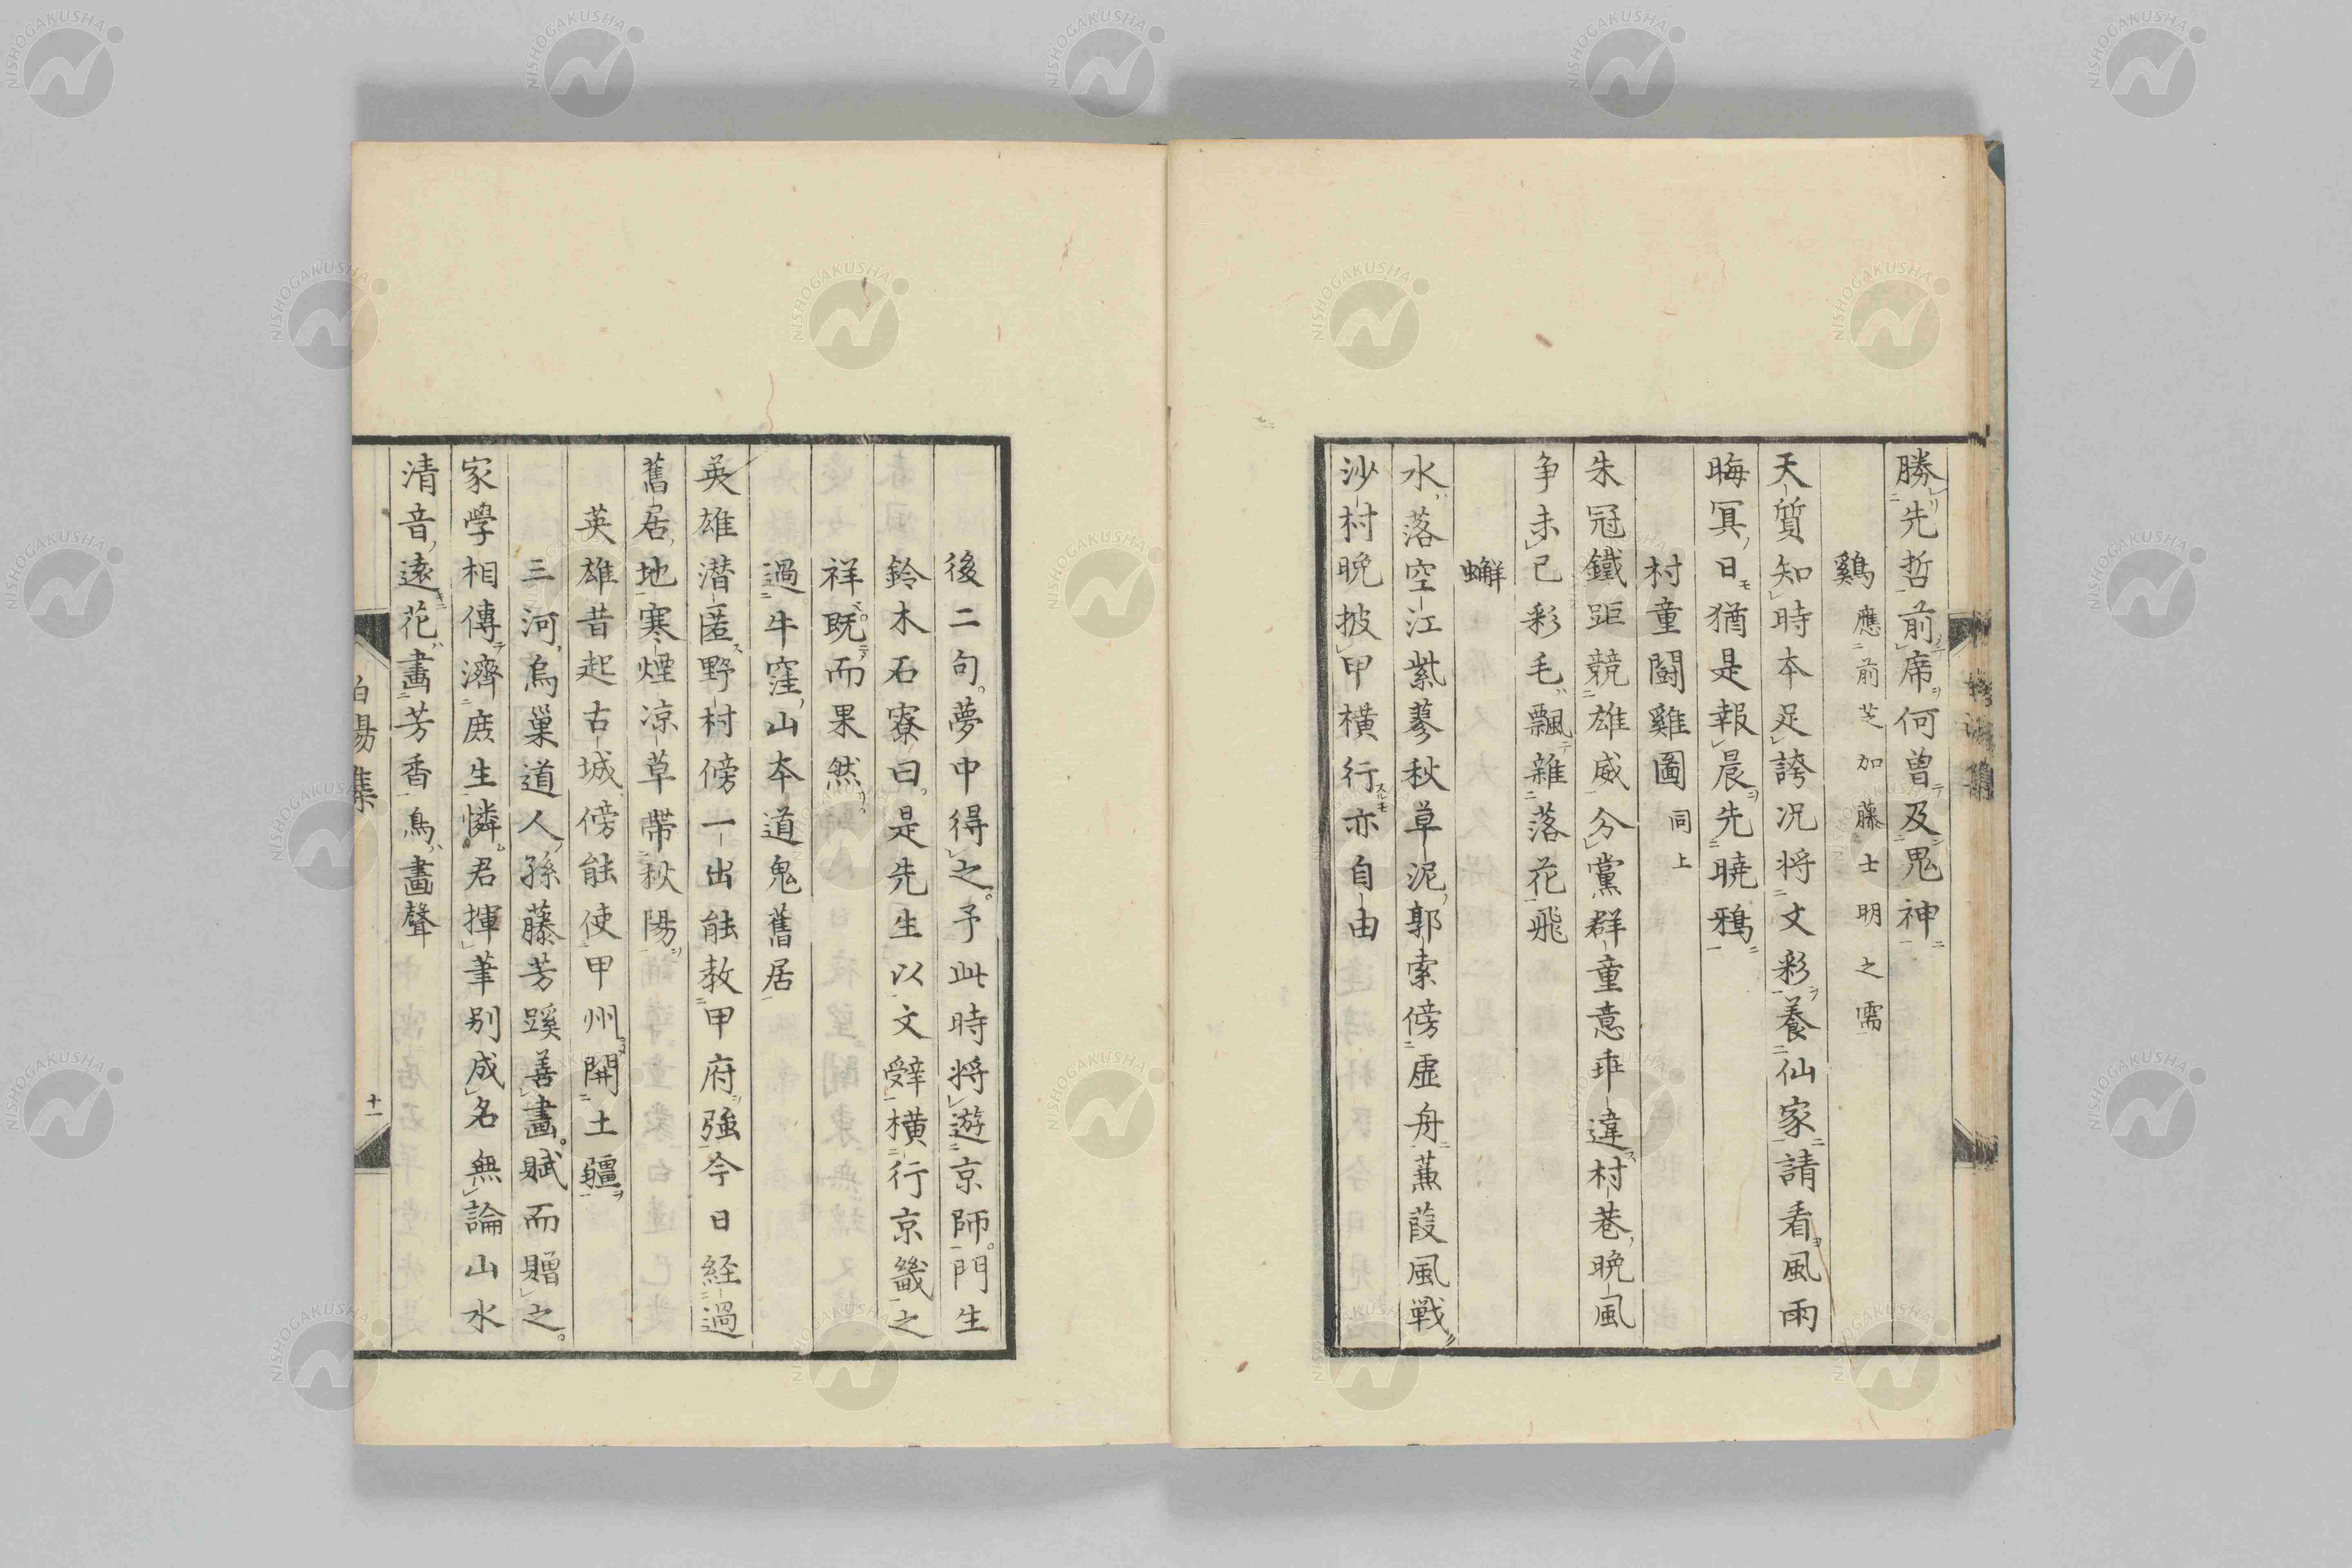 勝先哲前席何曽及鬼神
鷄 應前芝加藤士明之需
天質知時本足誇況将文彩養仙家請看風雨
晦冥日猶是報晨先曉鴉
村童闘雞圖 同上
朱冠鐵距競雄威分黨群童意乖違村巷晩風
争未已彩毛飄雜落花飛
蠏
水落空江紫蓼秋草泥郭索傍虚舟蒹葭風戦
沙村晩披甲横行亦自由
後二句。夢中得之。予此時将遊京師。門生
鈴木石寮曰。是先生以文辭横行京畿之
祥。既而果然。
過牛窪山本道鬼舊居
英雄潜匿野村傍一出能教甲府強今日経過
舊居地寒煙凉草帶秋陽
英雄昔起古城傍能使甲州開土疆
三河烏巢道人孫藤芳蹊善畫。賦而贈之。
家學相傳濟庶生憐君揮筆別成名無論山水
清音遠花畫芳香鳥畫聲
十一
NISHOGAKUSHA